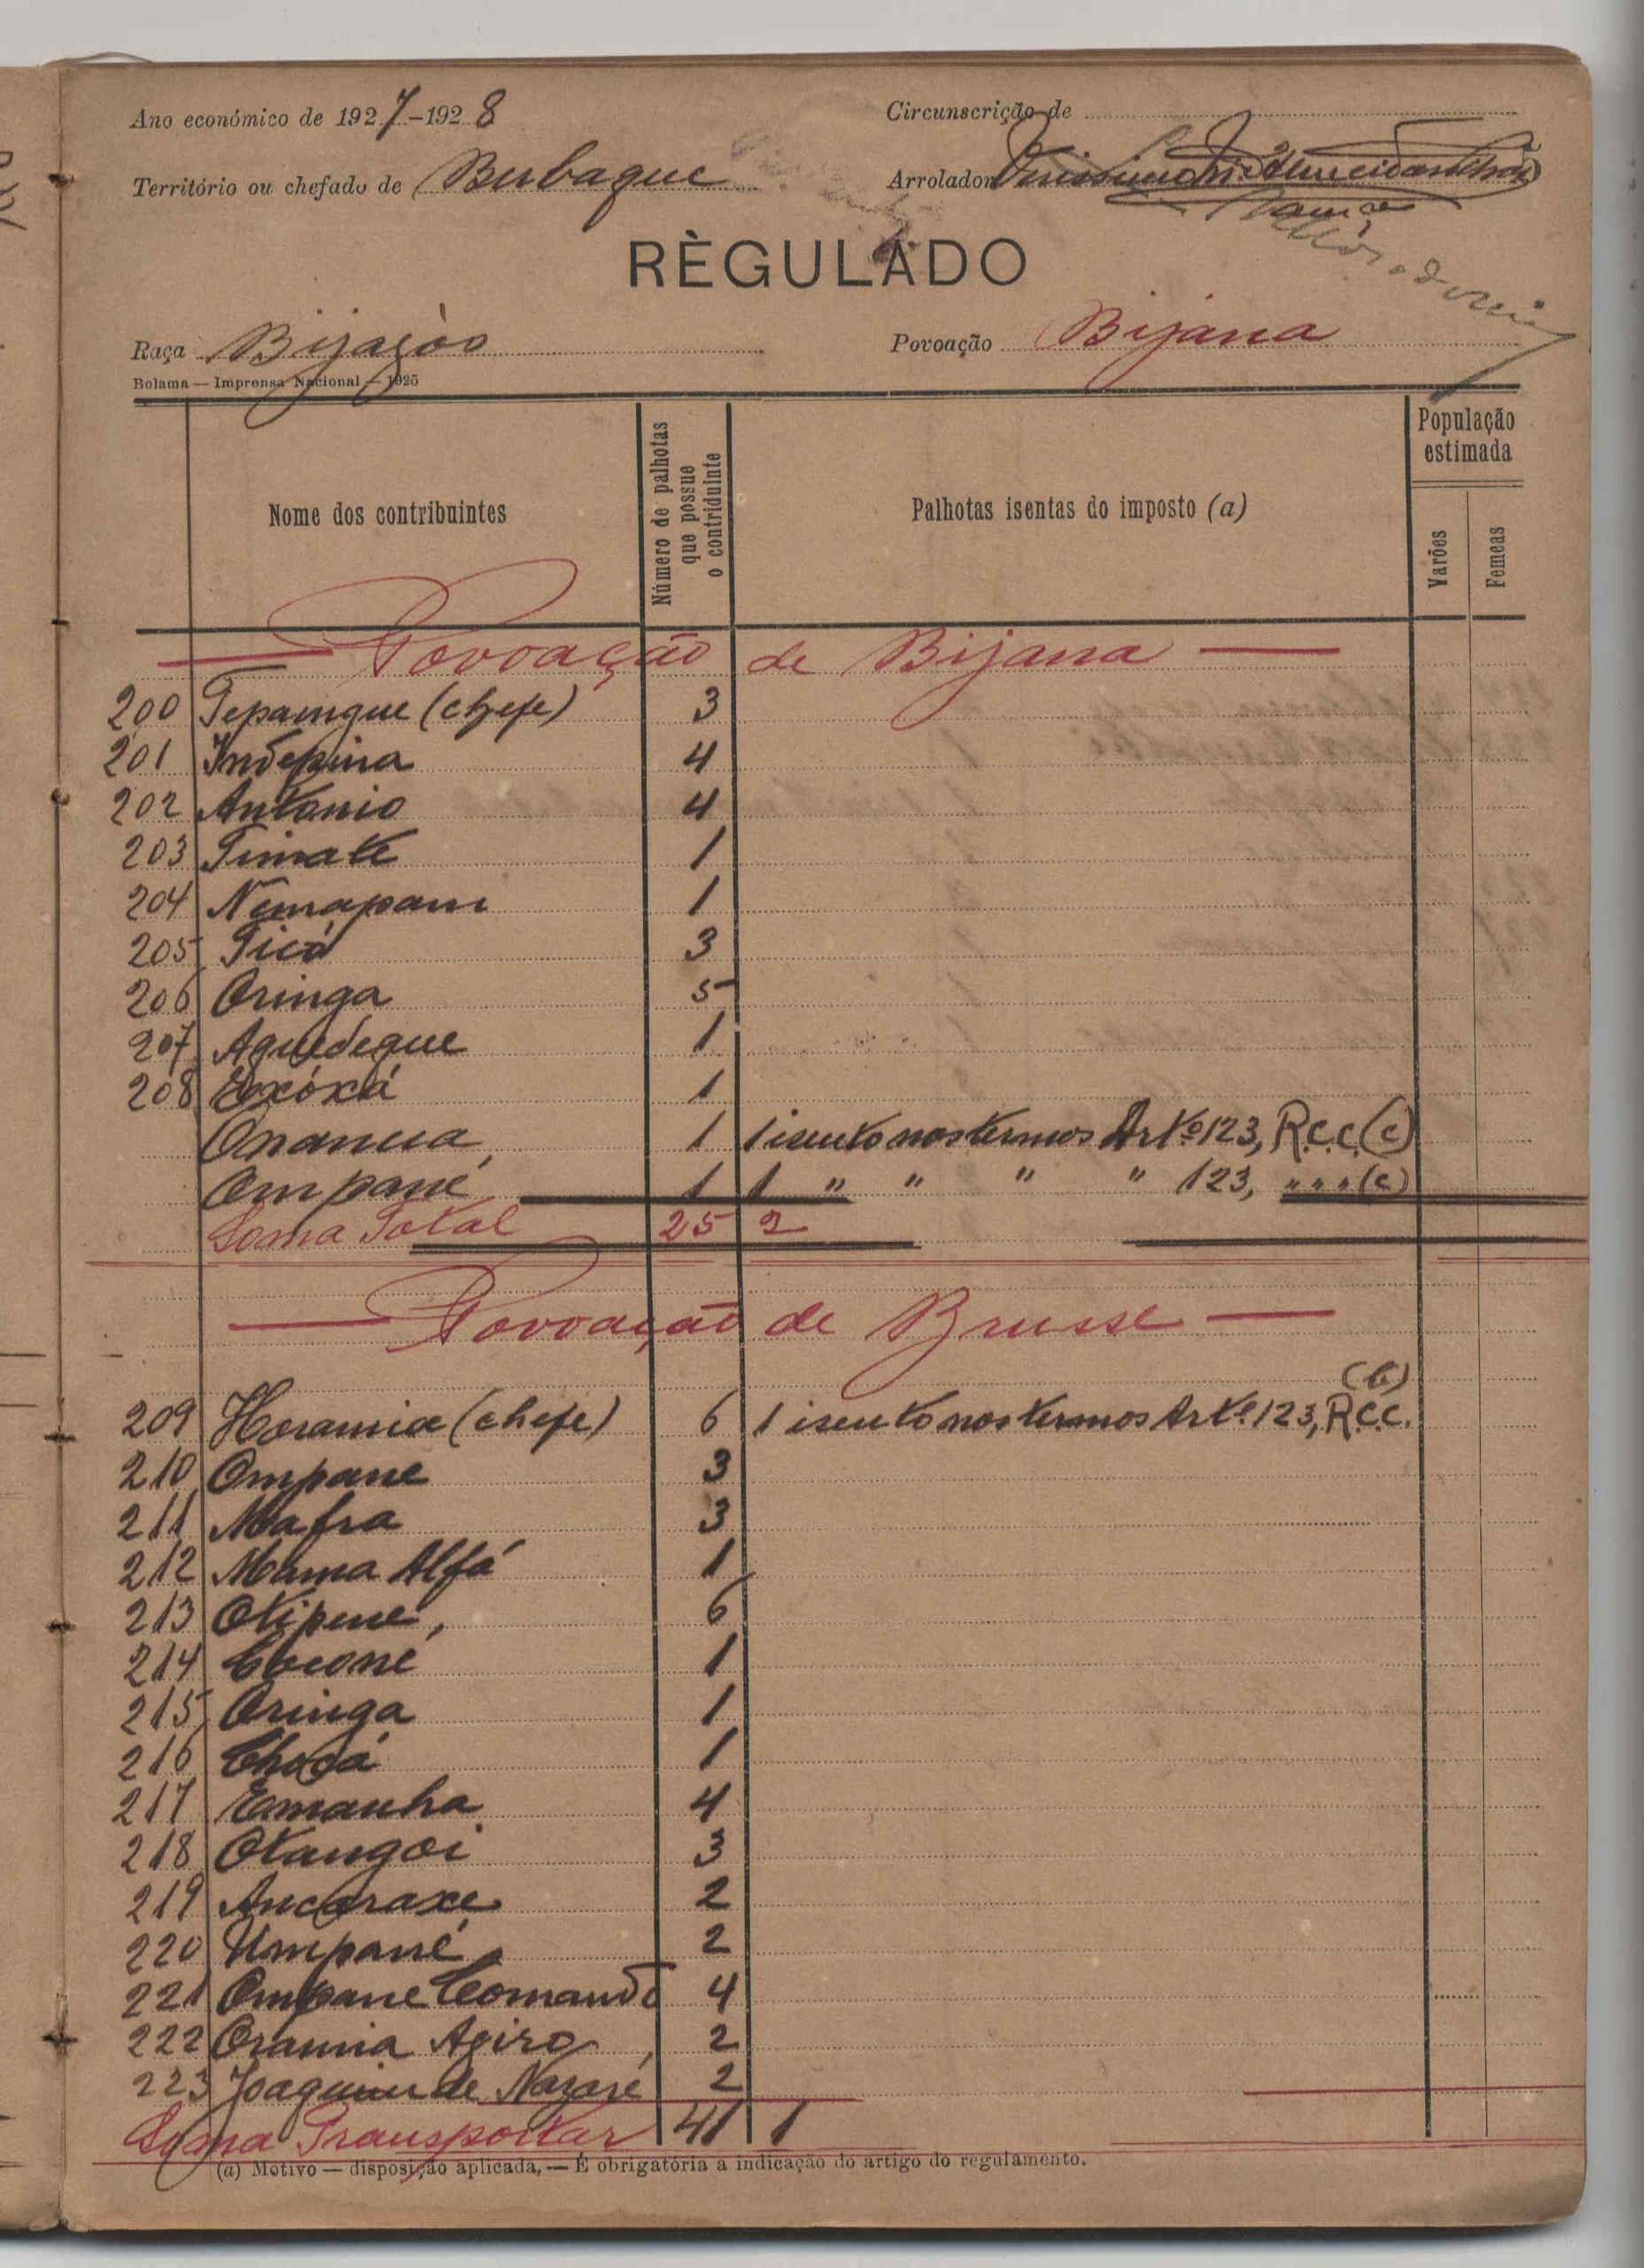 Ano económico de 1927-1928
Circunscrição de
Território ou chefado de Bubaque
Arrolador
RÈGULADO
Raça Bijagòs
Povoação Bijana
Bolama — Imprensa Nacional — 1925
Nome dos contribuintes
Número de palhotas que possue o contriduinte
Palhotas isentas do imposto (a)
População estimada
Varões
Femeas
Povoação de Bijana
200 Tepamgue (chefe) 3
201 Indepina 4
202 Antonio 4
203 Timate 1
204 Nemapam 1
205 Ticó 3
206 Oringa 5
207 Aguedegue 1
208 Exóxá 1
Onanua 1 1 isento nos termos Artº 123, R.C.C. (c)
Ompané 1 1 " " " " 123, " " " (c)
Soma Total 25 2
Povoação de Brusse
(b)
209 Horamia (chefe) 6 1 isento nos termos Artº 123, R.C.C.
210 Ompane 3
211 Mafra 3
212 Mama Alfá 1
213 Otipene 6
214 Cocone 1
215 Oringa 1
216 Chocá 1
217 Eamanha 4
218 Otangoi 3
219 Ancaraxe 2
220 Umpané 2
221 Ompane Comando 4
222 Oramia Agiro 2
223 Joaquim de Nazaré 2
Soma Transportar 41 1
(a) Motivo — disposição aplicada, — É obrigatória a indicação do artigo do regulamento.